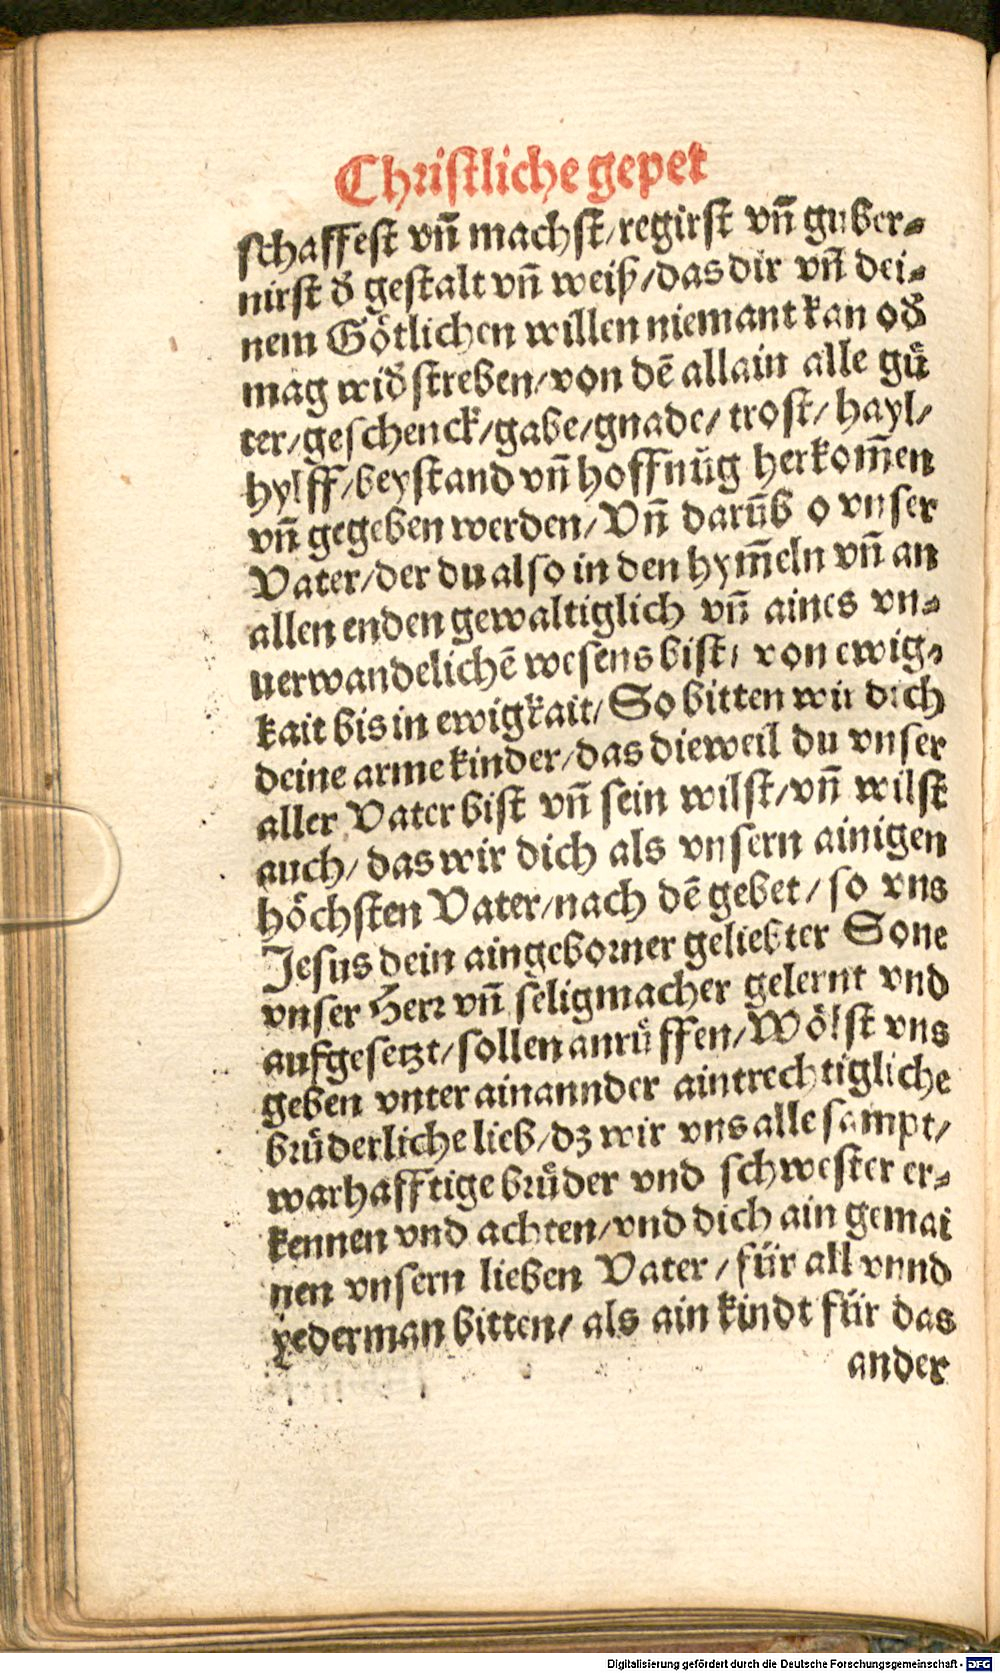 Christliche gepet
schaffest vñ machst/regirst vñ guber-
nirst d̕ gestalt vñ weiß/das dir vñ dei-
nem Götlichen willen niemant kan od̕
mag wid̕streben/von dē allain alle guͤ
ter/geschenck/gabe/gnade/trost/hayl/
hylff/beystand vñ hoffnūg herkom̄en
vñ gegeben werden/Vñ darūb o vnser
Vater/der du also in den hym̄eln vñ an
allen enden gewaltiglich vñ aines vn-
uerwandelichē wesens bist/von ewig-
kait bis in ewigkait/So bitten wir dich
deine arme kinder/das dieweil du vnser
aller Vater bist vñ sein wilst/vñ wilst
auch/das wir dich als vnsern ainigen
höchsten Vater/nach dē gebet/so vns
Jesus dein aingeborner geliebter Sone
vnser Herr vñ seligmacher gelernt vnd
aufgesetzt/sollen anruͤffen/Wölst vns
geben vnter ainannder aintrechtigliche
bruͤderliche lieb/dz wir vns alle sampt/
warhafftige bruͤder vnd schwester er-
kennen vnd achten/vnd dich ain gemai
nen vnsern lieben Vater/für all vnnd
yederman bitten/als ain kindt für das
ander
Digitalisierung gefördert durch die Deutsche Forschungsgemeinschaft - DFG